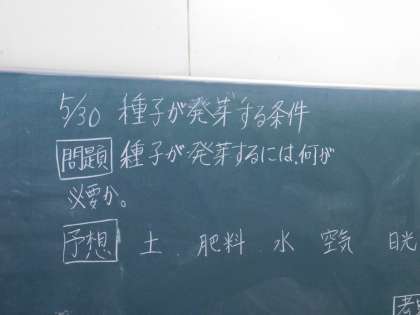 5/30 種子が発芽する条件
問題 種子が発芽するには、何が
必要か。
予想 土 肥料 水 空気 日光